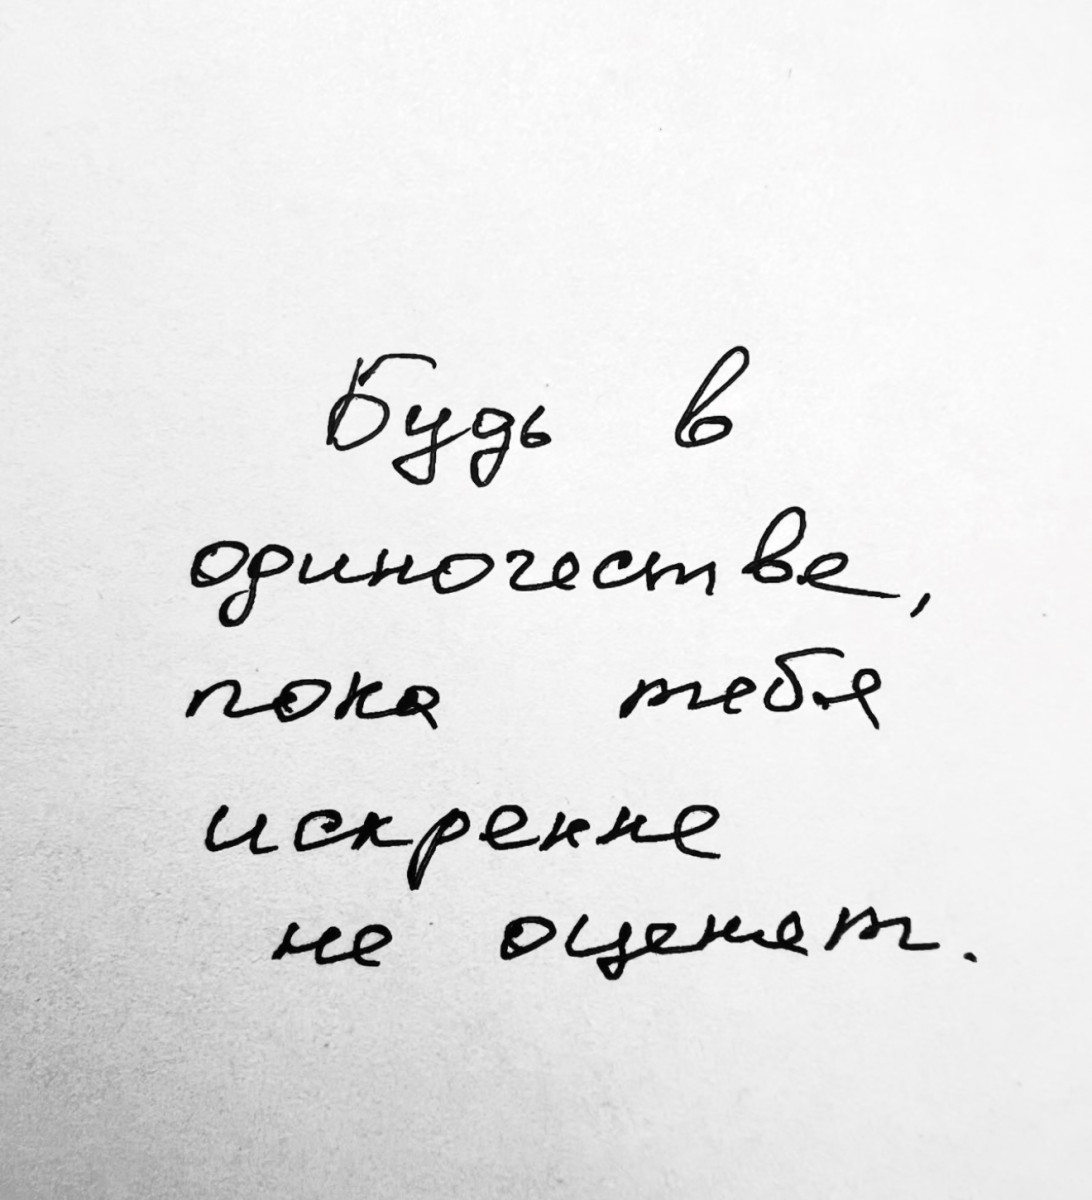 Будь в
одиночестве,
пока тебя
искренне
не оценят.